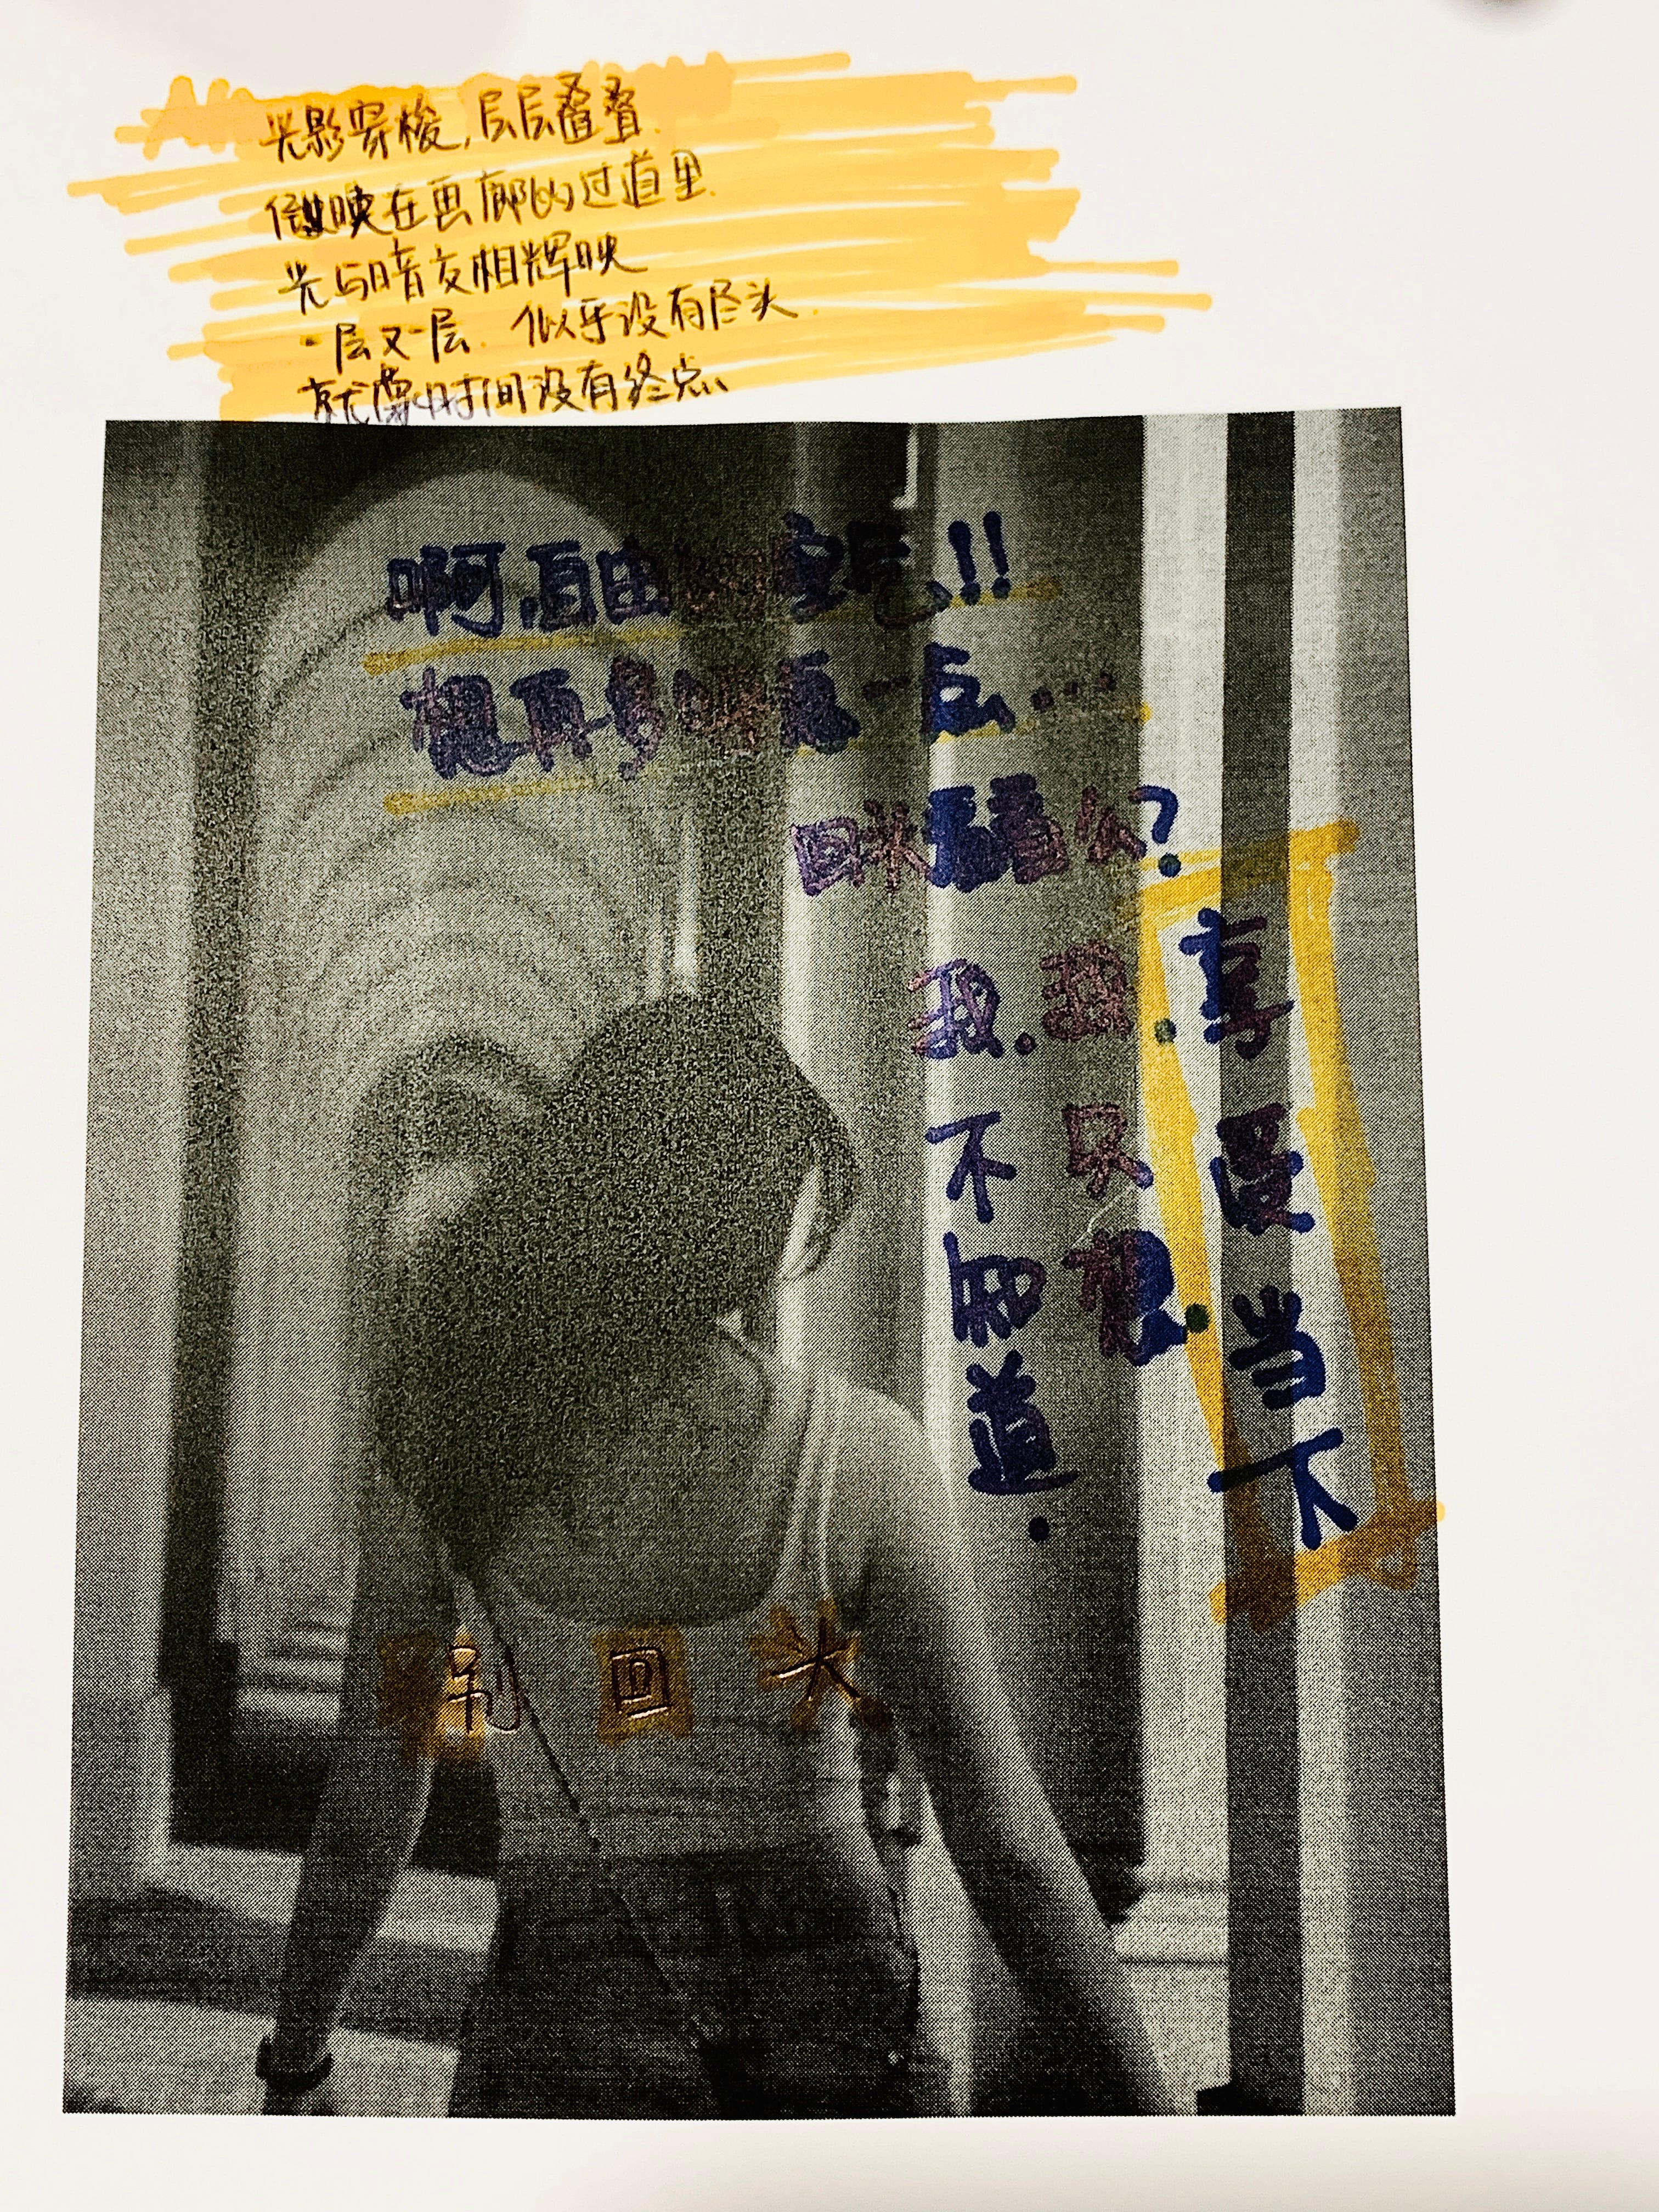 光影穿梭,层层叠叠.
微映在画廊的过道里.
光与暗交相辉映
一层又一层. 似乎没有尽头.
就像时间没有终点
啊,自由的空气!!
想再多呼吸一点....
回头看看么?
我.我.
不知道.
只想.
享受当下
别回头